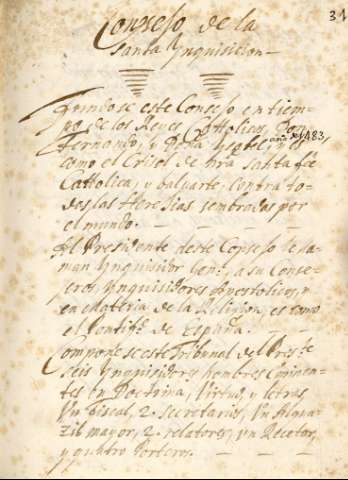 31
Consejo de la
santa Ynquisicion
Fundose este Consejo en tiem-
po de los Reyes Catholicos Don
Fernando, y Doña Ysabel, año de 1483, y es
como el Crisol de nra santa fee
Catholica, y baluarte, contra to-
das las Heresias sembradas por
el mundo.
Al Presidente deste Consejo lla-
man Ynquisidor Genl, a su Conse-
jeros Ynquisidores Apostolicos, y
en materia de la Religion, es como
el Pontife de España.
Componese este Tribunal del Preste
seis Ynquisidores hombres Eminen-
tes en Doctrina, Virtud, y letras,
Vn Fiscal, 2. secretarios, Vn Algua-
zil mayor, 2. relatores, vn Recetor,
y quatro Porteros.